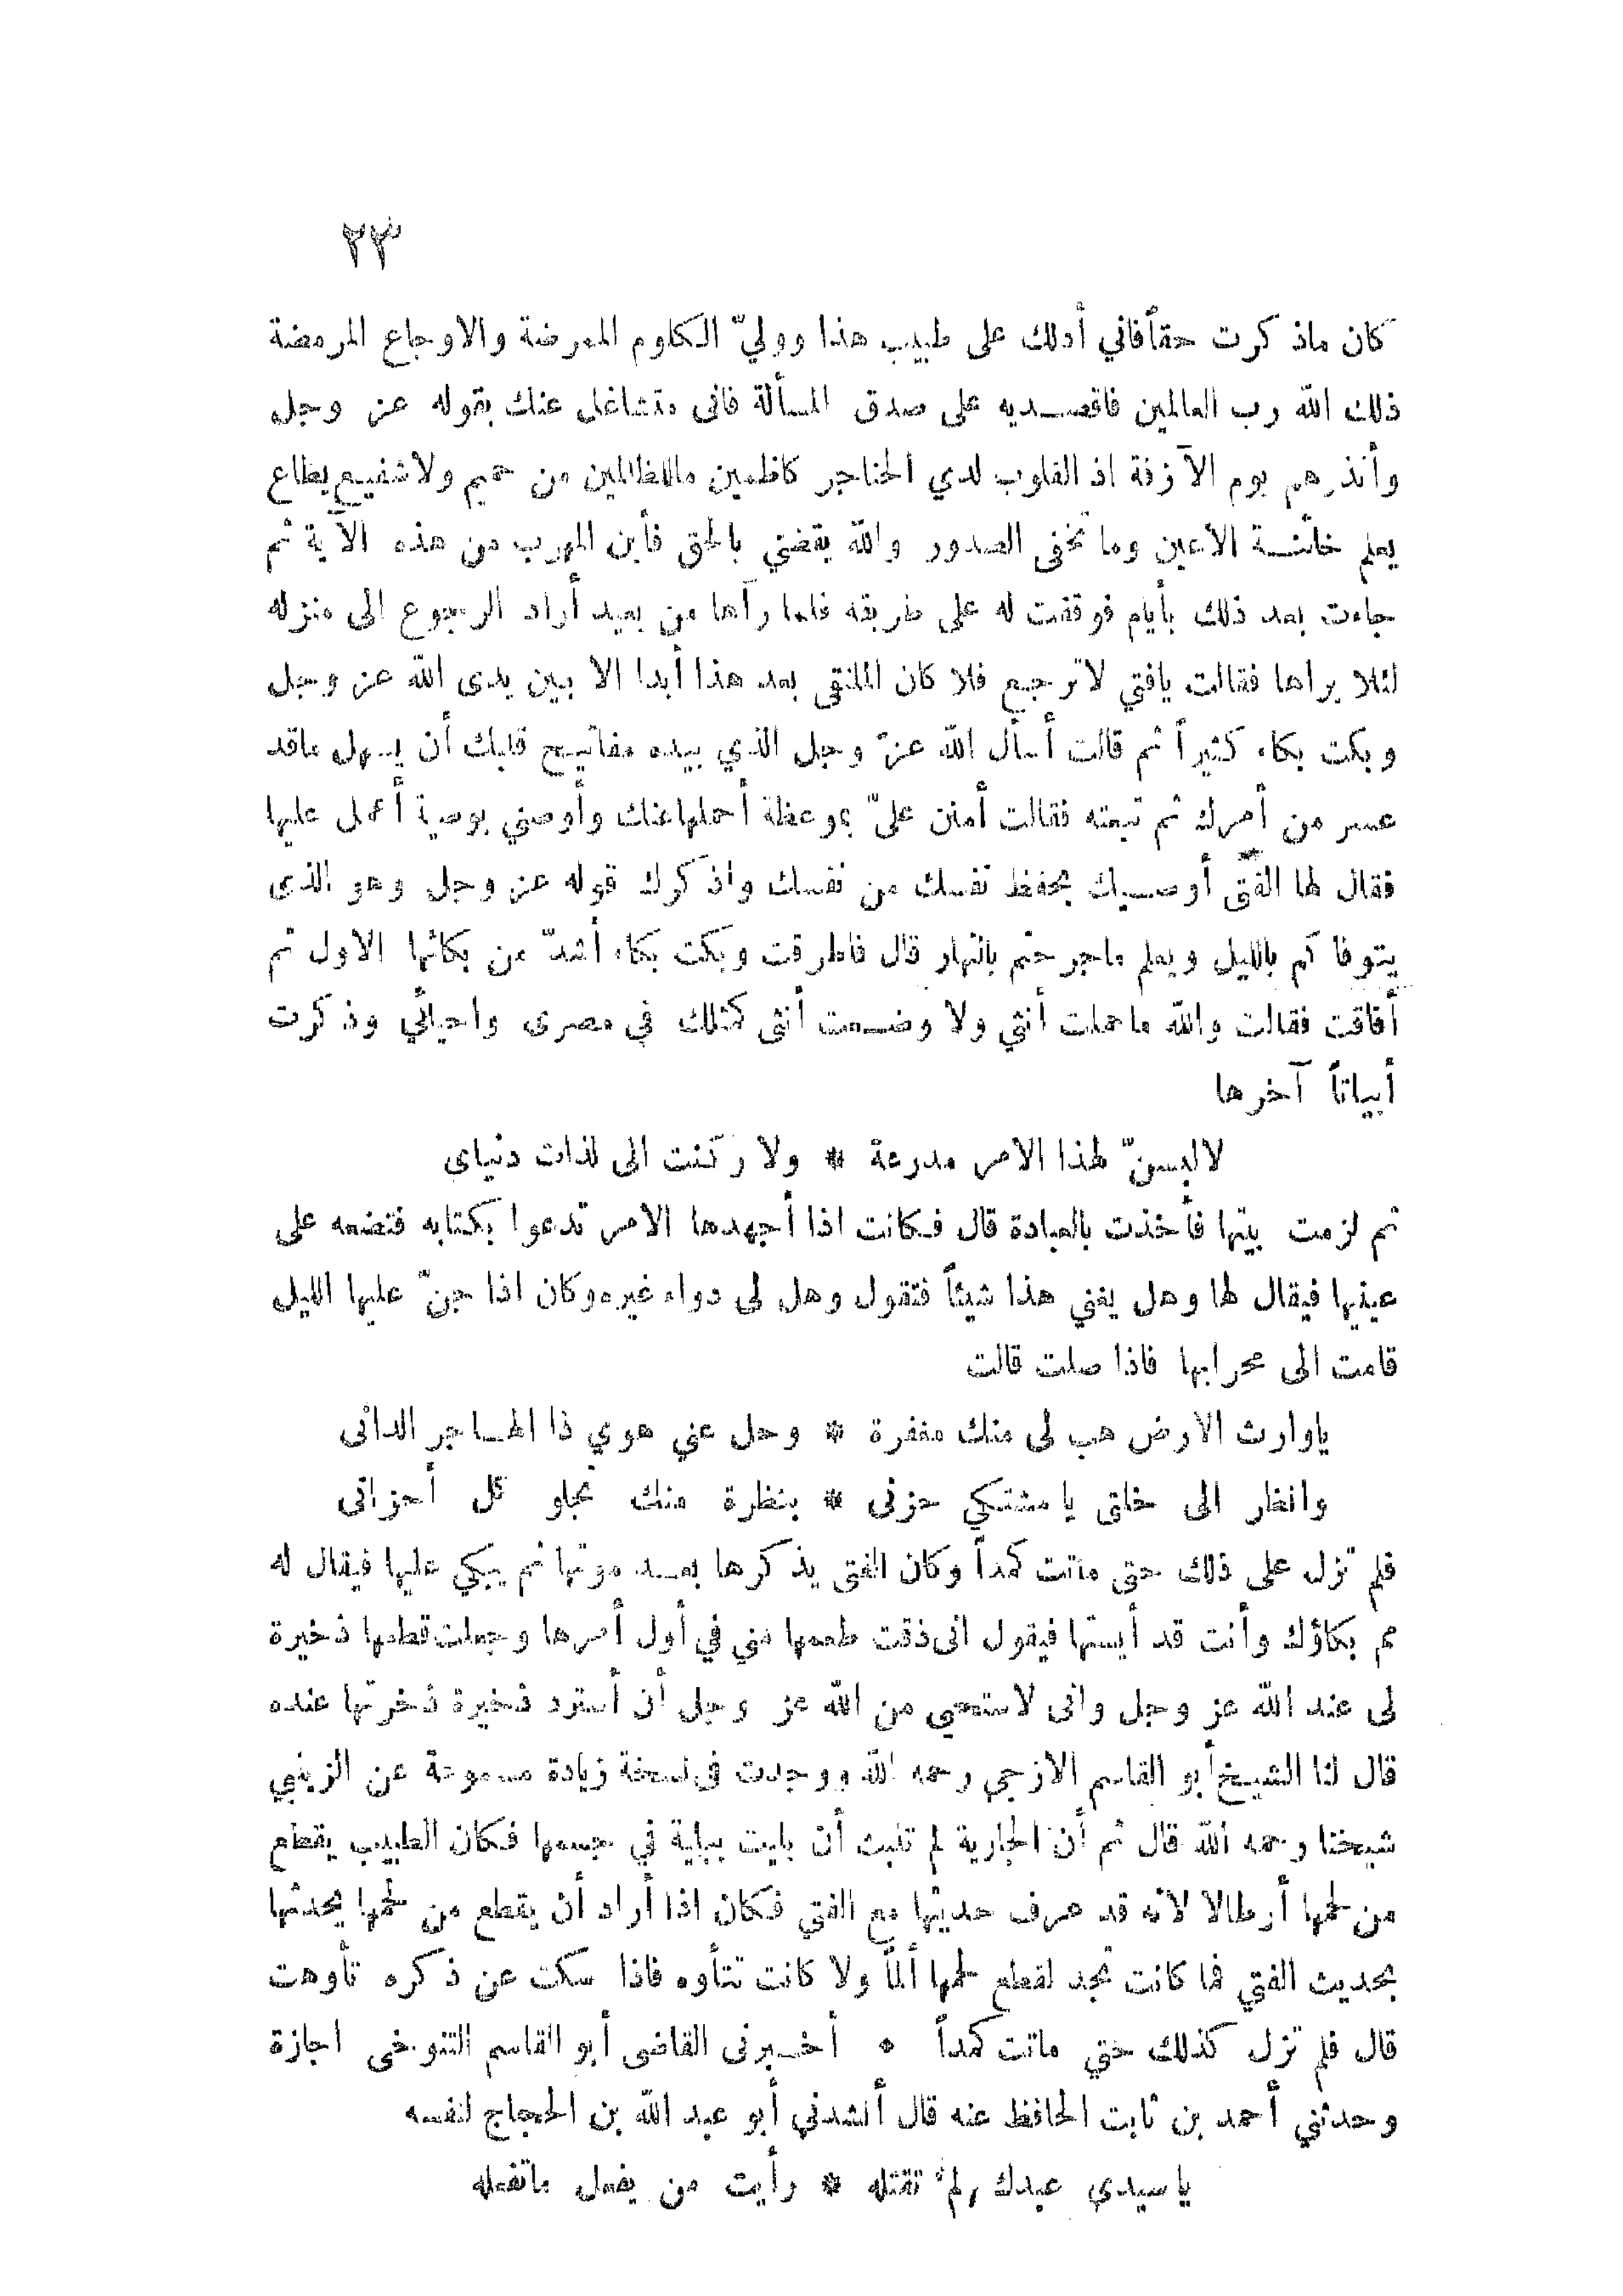 ٢٣
كان ماذكرت حقاً فاني أدلك على طبيب هذا ووليّ الكلوم الممرضة والاوجاع المرمضة
ذلك الله رب العالمين فاقصديه على صدق المسألة فانى متشاغل عنك بقوله عز وجل
وأنذرهم يوم الآزفة اذ القلوب لدي الحناجر كاظمين ماللظالمين من حميم ولا شفيع يطاع
يعلم خائنة الاعين وما تخفى الصدور والله يقضي بالحق فأين المهرب من هذه الآية ثم
جاءت بعد ذلك بأيام فوقفت له على طريقه فلما رآها من بعيد أراد الرجوع الى منزله
لئلا يراها فقالت يافتي لاترجع فلا كان الملتقى بعد هذا أبدا الا بين يدى الله عز وجل
وبكت بكاء كثيراً ثم قالت أسأل الله عزّ وجل الذي بيده مفاتيح قلبك أن يسهل ماقد
عسر من أمرك ثم تبعته فقالت أمنن علىّ بموعظة أحملها عنك وأوصني بوصية أعمل عليها
فقال لها الفتى أوصيك بحفظ نفسك من نفسك واذكرك قوله عز وجل وهو الذى
يتوفاكم بالليل ويعلم ماجرحتم بالنهار قال فاطرقت وبكت بكاء أشدّ من بكائها الاول ثم
أفاقت فقالت والله ماحملت أنثي ولا وضعت أنثى كمثلك في مصرى واحيائي وذكرت
أبياتاً آخرها
لالبسنّ لهذا الامر مدرعة * ولا ركنت الى لذات دنياى
ثم لزمت بيتها فأخذت بالعبادة قال فكانت اذا أجهدها الامر تدعوا بكتابه فتضعه على
عينيها فيقال لها وهل يغني هذا شيئاً فتقول وهل لى دواء غيره وكان اذا جنّ عليها الليل
قامت الى محرابها فاذا صلت قالت
ياوارث الارض هب لى منك مغفرة * وحل عني هوي ذا الهاجر الدانى
وانظر الى خلتى يا مشتكي حزنى * بنظرة منك تجلو كل أحزانى
فلم تزل على ذلك حتى ماتت كمداً وكان الفتى يذكرها بعد موتها ثم يبكي عليها فيقال له
مم بكاؤك وأنت قد أيستها فيقول انى ذقت طعمها مني في أول أمرها وجعلت قطعها ذخيرة
لى عند الله عز وجل وانى لاستحيى من الله عز وجل أن أسترد ذخيرة ذخرتها عنده
قال لنا الشيخ أبو القاسم الازجي رحمه الله ووجدت فى نسخة زيادة مسموعة عن الزينبي
شيخنا رحمه الله قال ثم أن الجارية لم تلبث أن بليت ببلية في جسمها فكان الطبيب يقطع
من لحمها أرطالا لانه قد عرف حديثها مع الفتي فكان اذا أراد أن يقطع من لحمها يحدثها
بحديث الفتي فما كانت تجد لقطع لحمها ألماً ولا كانت تتأوه فاذا سكت عن ذكره تأوهت
قال فلم تزل كذلك حتي ماتت كمداً * أخبرنى القاضى أبو القاسم التنوخى اجازة
وحدثني أحمد بن ثابت الحافظ عنه قال أنشدني أبو عبد الله بن الحجاج لنفسه
ياسيدي عبدك لم تقتله * رأيت من يفعل ماتفعله